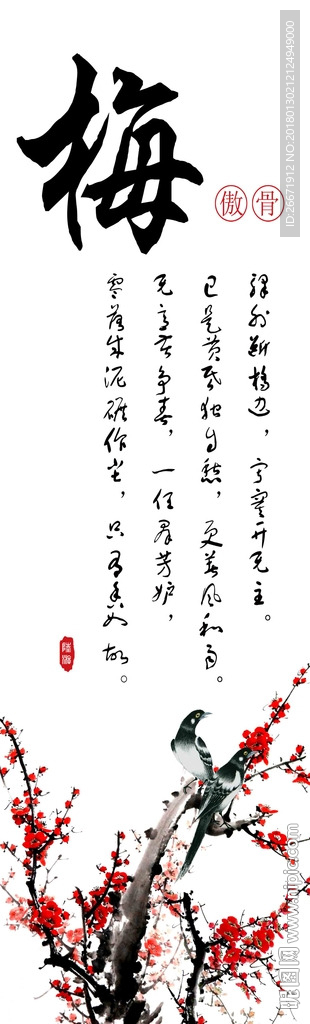 梅
傲骨
驿外断桥边，寂寞开无主。
已是黄昏独自愁，更著风和雨。
无意苦争春，一任群芳妒，
零落成泥碾作尘，只有香如故。
ID:26671912 NO:20180130212124949000
昵图网 www.nipic.com